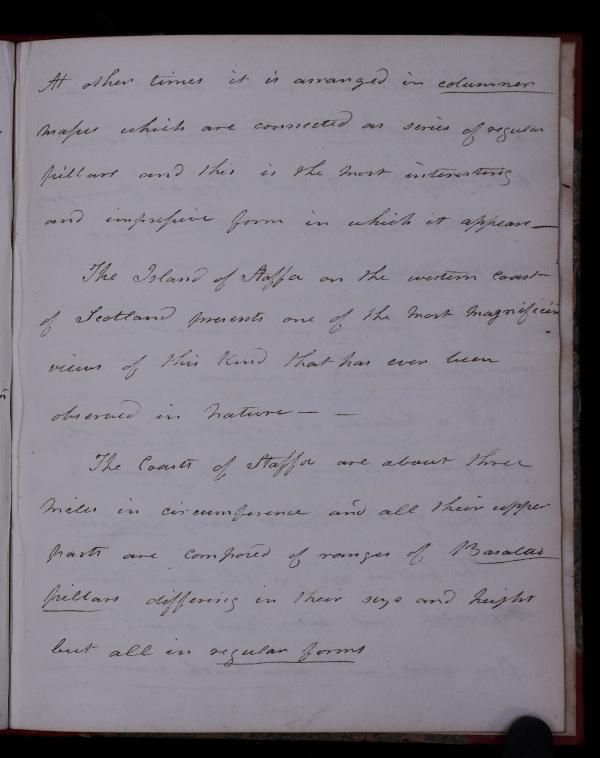 At other times it is arranged in columner
masses which are connected as series of regular
pillars and this is the most interesting
and impressive form in which it appears —
The Island of Staffa on the western coast
of Scotland presents one of the most magnificen
views of this kind that has ever been
observed in nature — —
The Coasts of Staffa are about three
miles in circumference and all their upper
parts are composed of ranges of Basaltic
pillars differing in their size and height
but all in regular forms